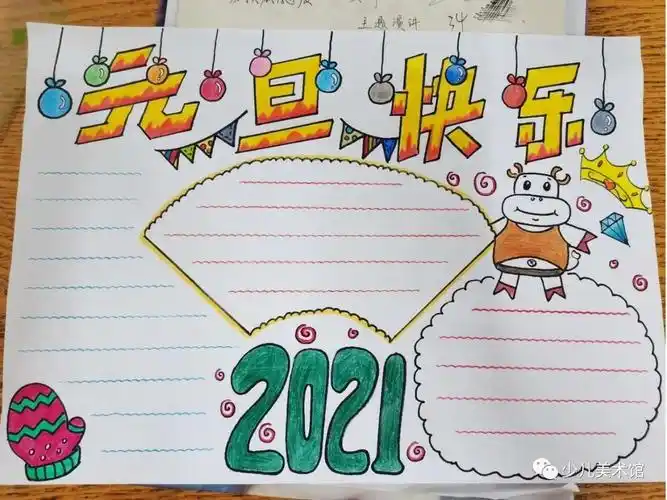 主题演讲
元旦快乐
2021
少儿美术馆